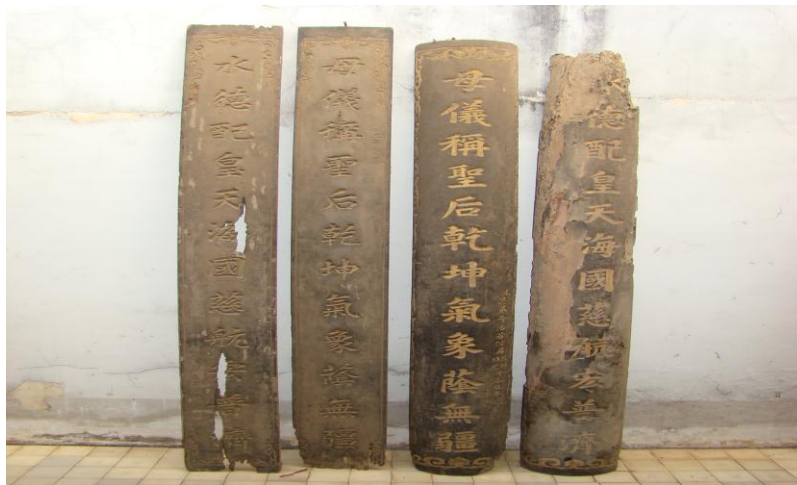 德配皇天海國慈航宏普濟
母儀稱聖后乾坤氣象蔭無疆
母儀稱聖后乾坤氣象蔭無疆
水德配皇天海國慈航宏普濟